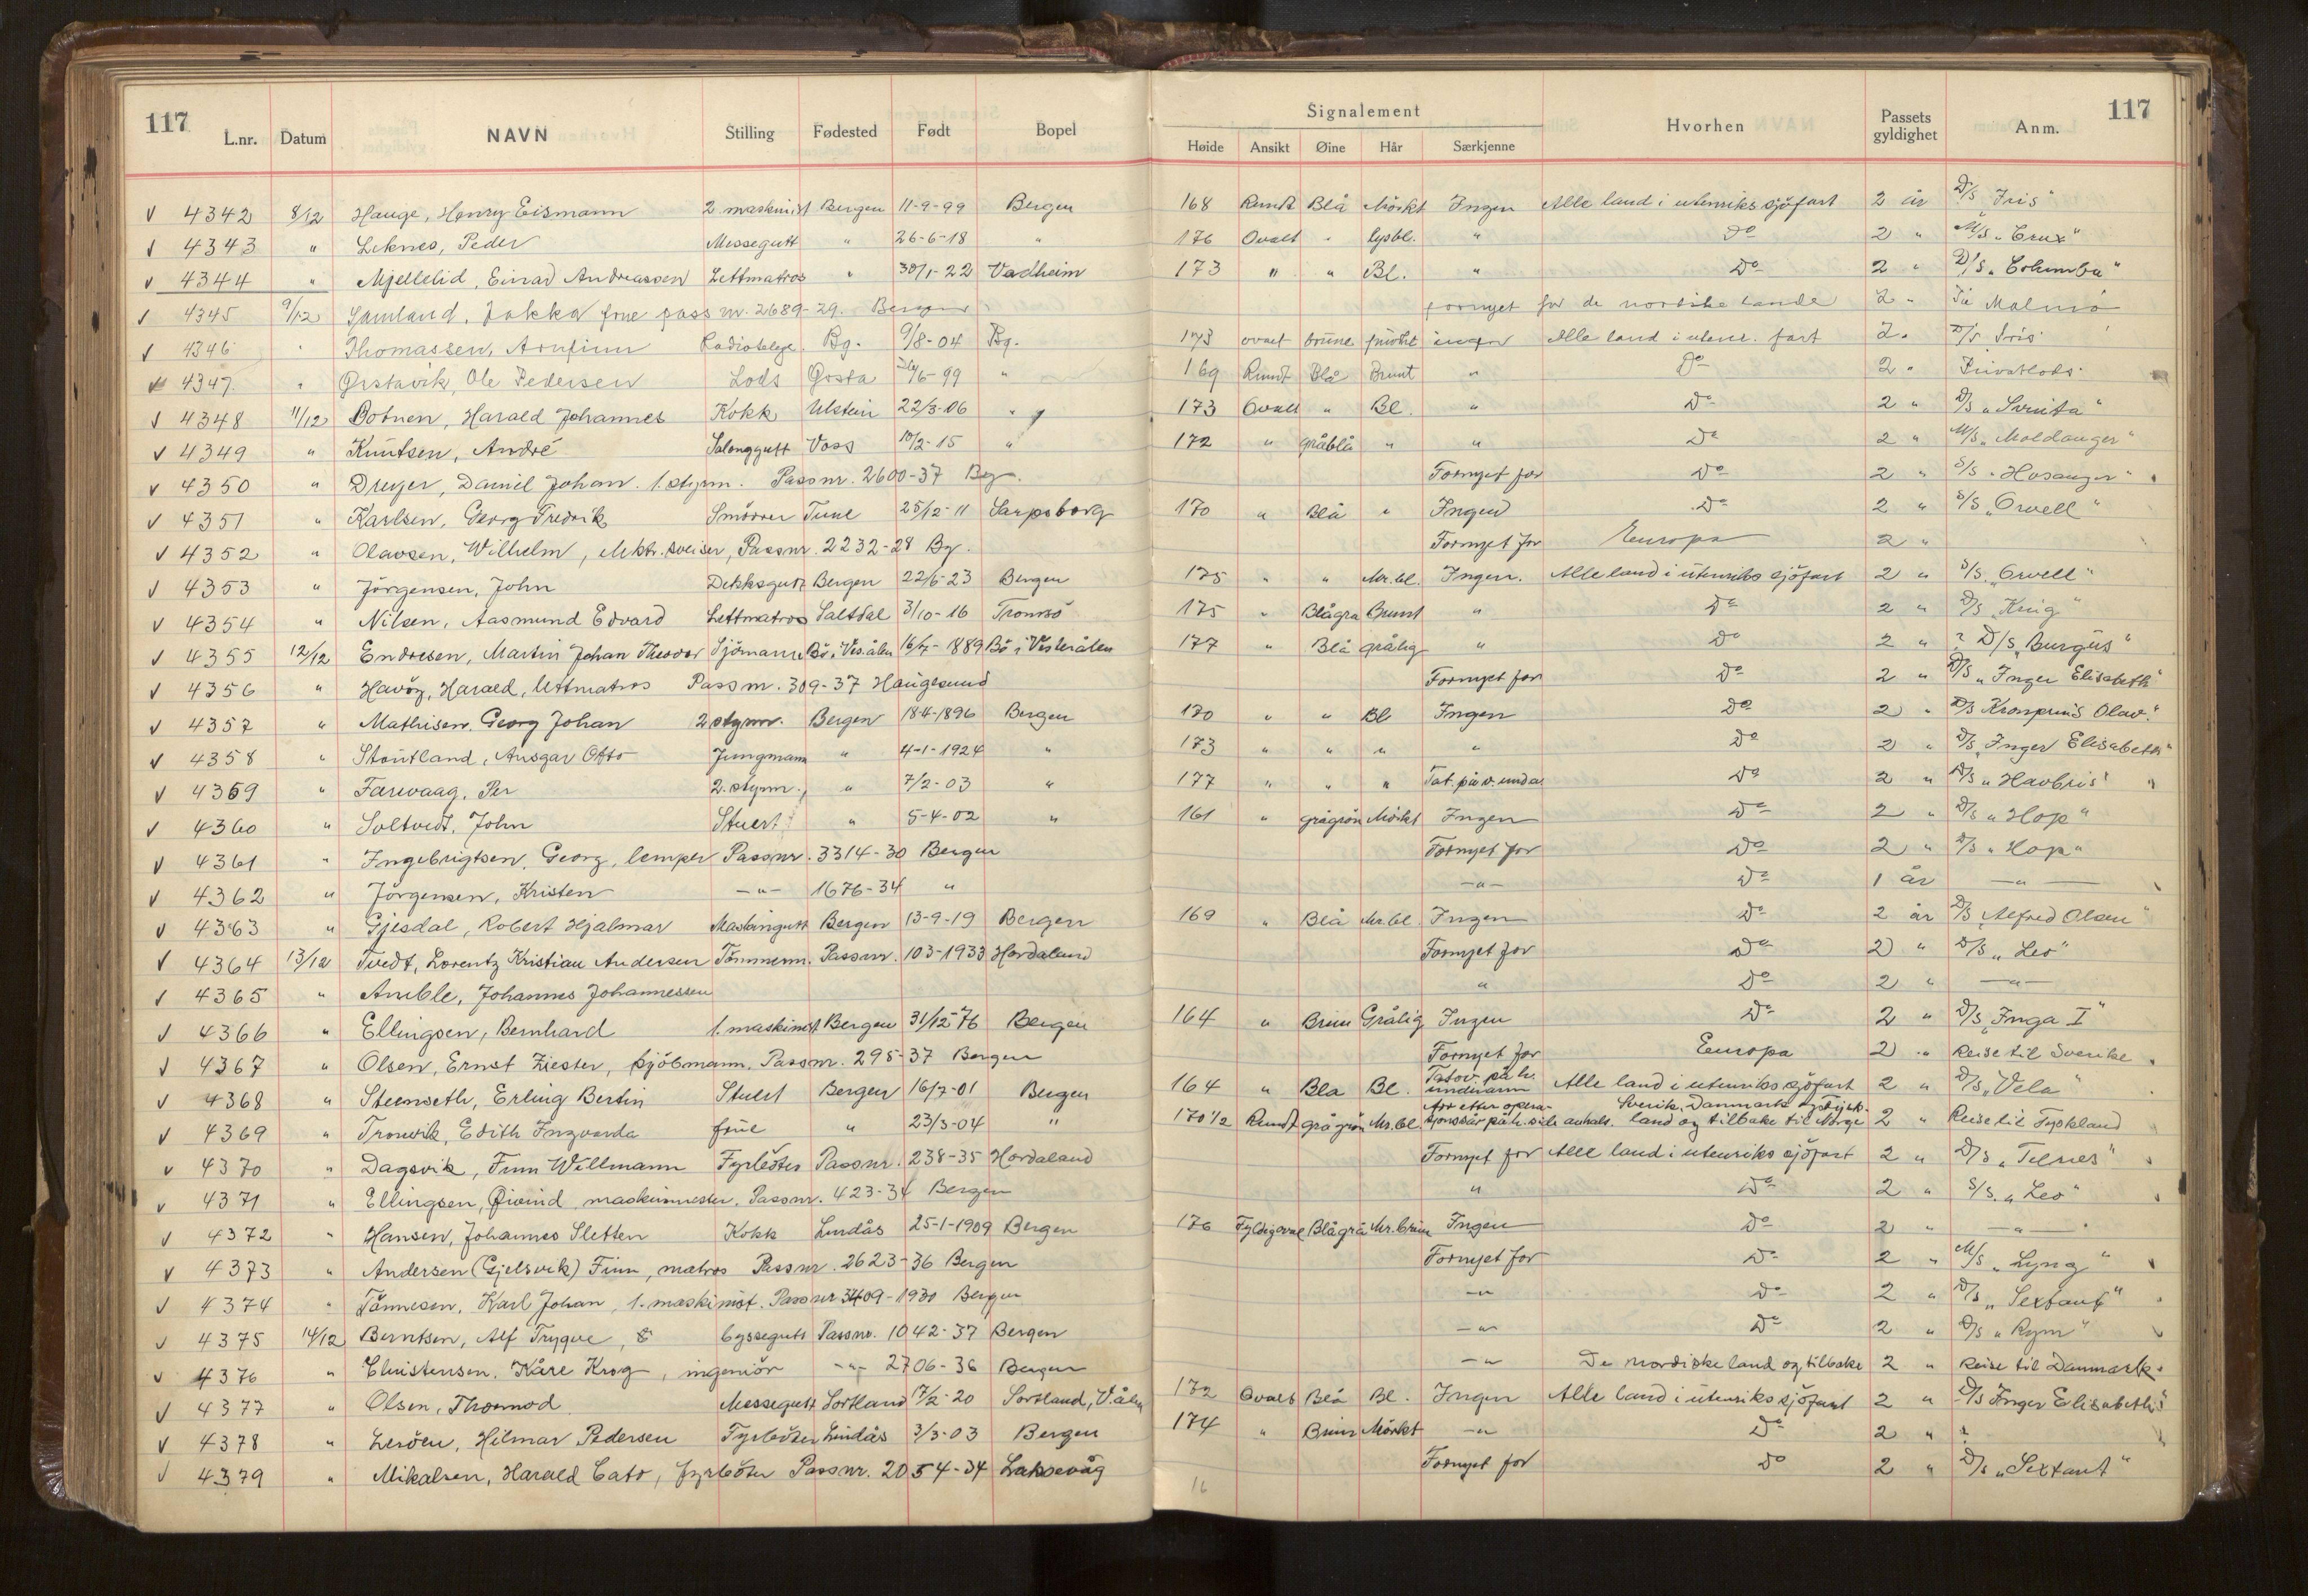 117
L.nr. Datum NAVN Stilling Fødested Født Bopel
v 4342 8/12 Hauge, Henry Eismann 2. maskinist Bergen 11-9-99 Bergen
v 4343 " Leknes, Peder Messegutt " 26-6-18 "
v 4344 " Mjellelid, Einar Andreassen Lettmatros " 30/1-22 Vadheim
v 4345 9/12 Samland, Jakka frue pass nr. 2689-29. Bergen
v 4346 " Thomassen, Arnfinn Radioteleg. Bg. 9/8-04 Bg.
v 4347 " Ørstavik, Ole Pedersen Lods Ørsta /6-99 "
v 4348 11/12 Botnen, Harald Johannes Kokk Ulstein 22/3-06 "
v 4349 " Knutsen, André Salonggutt Voss 10/2-15 "
v 4350 " Dreyer, Daniel Johan. 1. styrm. Passnr. 2600-37 Bg.
v 4351 " Karlsen, Georg Fredrik Smörer Tune 25/12-11 Sarpsborg
v 4352 " Olavsen, Wilhelm, elektr. sveiser, Passnr. 2232-28 Bg.
v 4353 " Jörgensen, John Dekksgutt Bergen 22/6-23 Bergen
v 4354 " Nilsen, Aasmund Edvard Lettmatros Saltdal 3/10-16 Tromsö
v 4355 12/12 Endresen, Martin Johan Theodor Sjömann Bö i Ves.ålen 16/7-1889 Bö i Vesterålen
v 4356 " Havög, Harald, lettmatros Passnr. 309-37 Haugesund
v 4357 " Mathisen, Georg Johan 2 styrm. Bergen 18-4-1896 Bergen
v 4358 " Stoutland, Ansgar Otto Jungmann " 4-1-1924 "
v 4359 " Farevaag, Per 2. styrm. " 7/2-03 "
v 4360 " Soltvedt, John Stuert " 5-4-02 "
v 4361 " Ingebrigtsen, Georg, lemper Passnr. 3314-30 Bergen
v 4362 " Jörgensen, Kristen -"- 1676-34 "
v 4363 " Gjesdal, Robert Hjalmar Maskingutt Bergen 13-9-19 Bergen
v 4364 13/12 Tvedt, Lorentz Kristian Andersen Tömmerm. Passnr. 103-1933 Hordaland
v 4365 " Amble, Johannes Johannessen
v 4366 " Ellingsen, Bernhard 1. maskinist Bergen 31/12-76 Bergen
v 4367 " Olsen, Ernst Ziester, kjöbmann, Passnr. 295-37 Bergen
v 4368 " Steenseth, Erling Bertin Stuert Bergen 16/7-01 Bergen
v 4369 " Tronvik, Edith Ingvarda frue " 23/3-04 "
v 4370 " Dagsvik, Finn Willmann Fyrböter Passnr. 238-35 Hordaland
v 4371 " Ellingsen, Øivind, maskinmester, Passnr. 423-34 Bergen
v 4372 " Hansen, Johannes Sletten Kokk Lindås 25-1-1909 Bergen
v 4373 " Andersen (Gjelsvik) Finn, matros Passnr. 2623-36 Bergen
v 4374 " Tönnesen, Karl Johan, 1. maskinist. Passnr 3409-1930 Bergen
v 4375 14/12 Berntsen, Alf Trygve, byssegutt Passnr. 1042-37 Bergen
v 4376 " Christensen, Kåre Krog, ingeniör -"- 2706-36 Bergen
v 4377 " Olsen, Thormod Messegutt Sortland 17/2-20 Sortland, V.ålen
v 4378 " Leröen, Hilmar Pedersen Fyrböter Lindås 3/3-03 Bergen
v 4379 " Mikalsen, Harald Cato, fyrböter Passnr. 2054-34 Laksevåg
117
Signalement
Høide Ansikt Øine Hår Særkjenne Hvorhen Passets gyldighet Anm.
168 Rundt Blå Mörkt Ingen Alle land i utenriks sjöfart 2 år D/S "Iris"
176 Ovalt " lysbl. " Do 2 " M/S "Crux"
173 " " Bl. " Do 2 " D/S "Columba"
fornyet for de nordiske lande 2 " Til Malmö
173 ovalt brune mörkt ingen Alle land i utenr. fart 2 " D/S Iris
169 Rundt Blå Brunt " Do 2 " Privatlods.
173 Ovalt " Bl. " Do 2 " D/S
172 " gråblå " " Do 2 " M/S "Moldanger"
Fornyet for Do 2 " S/S "Hosanger"
170 " Blå " Ingen Do 2 " S/S "Orwell"
Fornyet for Europa 2 "
175 " " Mr.bl. Ingen. Alle land i utenriks sjöfart 2 " S/S "Orwell"
175 " Blågrå Brunt " Do 2 " D/S "Krig"
177 " Blå grålig " Do 2 " ? D/S "Burgus"
Fornyet for Do 2 " D/S "Inger Elisabeth"
170 " " Bl Ingen Do 2 " D/S Kronprins Olav"
173 " " " " Do 2 " D/S "Inger Elisabeth"
177 " " " Tat. på v. undar. Do 2 " D/S "Havbris"
161 " grågrön Mörkt Ingen Do 2 " D/S "Hop"
Fornyet for Do 2 " D/S "Hop"
-"- Do 1 år -"-
169 " Blå Mr.bl. Ingen Do 2 år D/S "Alfred Olsen"
Fornyet for Do 2 " D/S "Leo"
" Do 2 " -"-
164 " Brun Grålig Ingen Do 2 " D/S "Inga I"
Fornyet for Europa 2 " Reise til Sverike
164 " Blå Bl. Tatov. på h. underarm Alle land i utenriks sjöfart 2 " D/S "Vela"
170 1/2 Rundt grågrön Mr.bl. Arr etter opera- sjonssår på h. side av hals. Sverik, Danmark og Tysk- land og tilbake til Norge 2 " Reise til Tyskland
Fornyet for Alle land i utenriks sjöfart 2 " D/S "Telnes"
" Do 2 " S/S "Leo"
176 Fyldigoval Blågrå Mr.brun Ingen Do 2 " -"-
Fornyet for Do 2 " M/S "Lyng"
-"- Do 2 " D/S "Sextant"
-"- Do 2 " D/S "Rym"
-"- De nordiske land og tilbake 2 " Reise til Danmark
172 Ovalt Blå Bl. Ingen Alle land i utenriks sjöfart 2 " D/S Inger Elisabeth"
174 " Brun Mörkt -"- Do 2 " ?
Fornyet for Do 2 " D/S "Sextant"
16